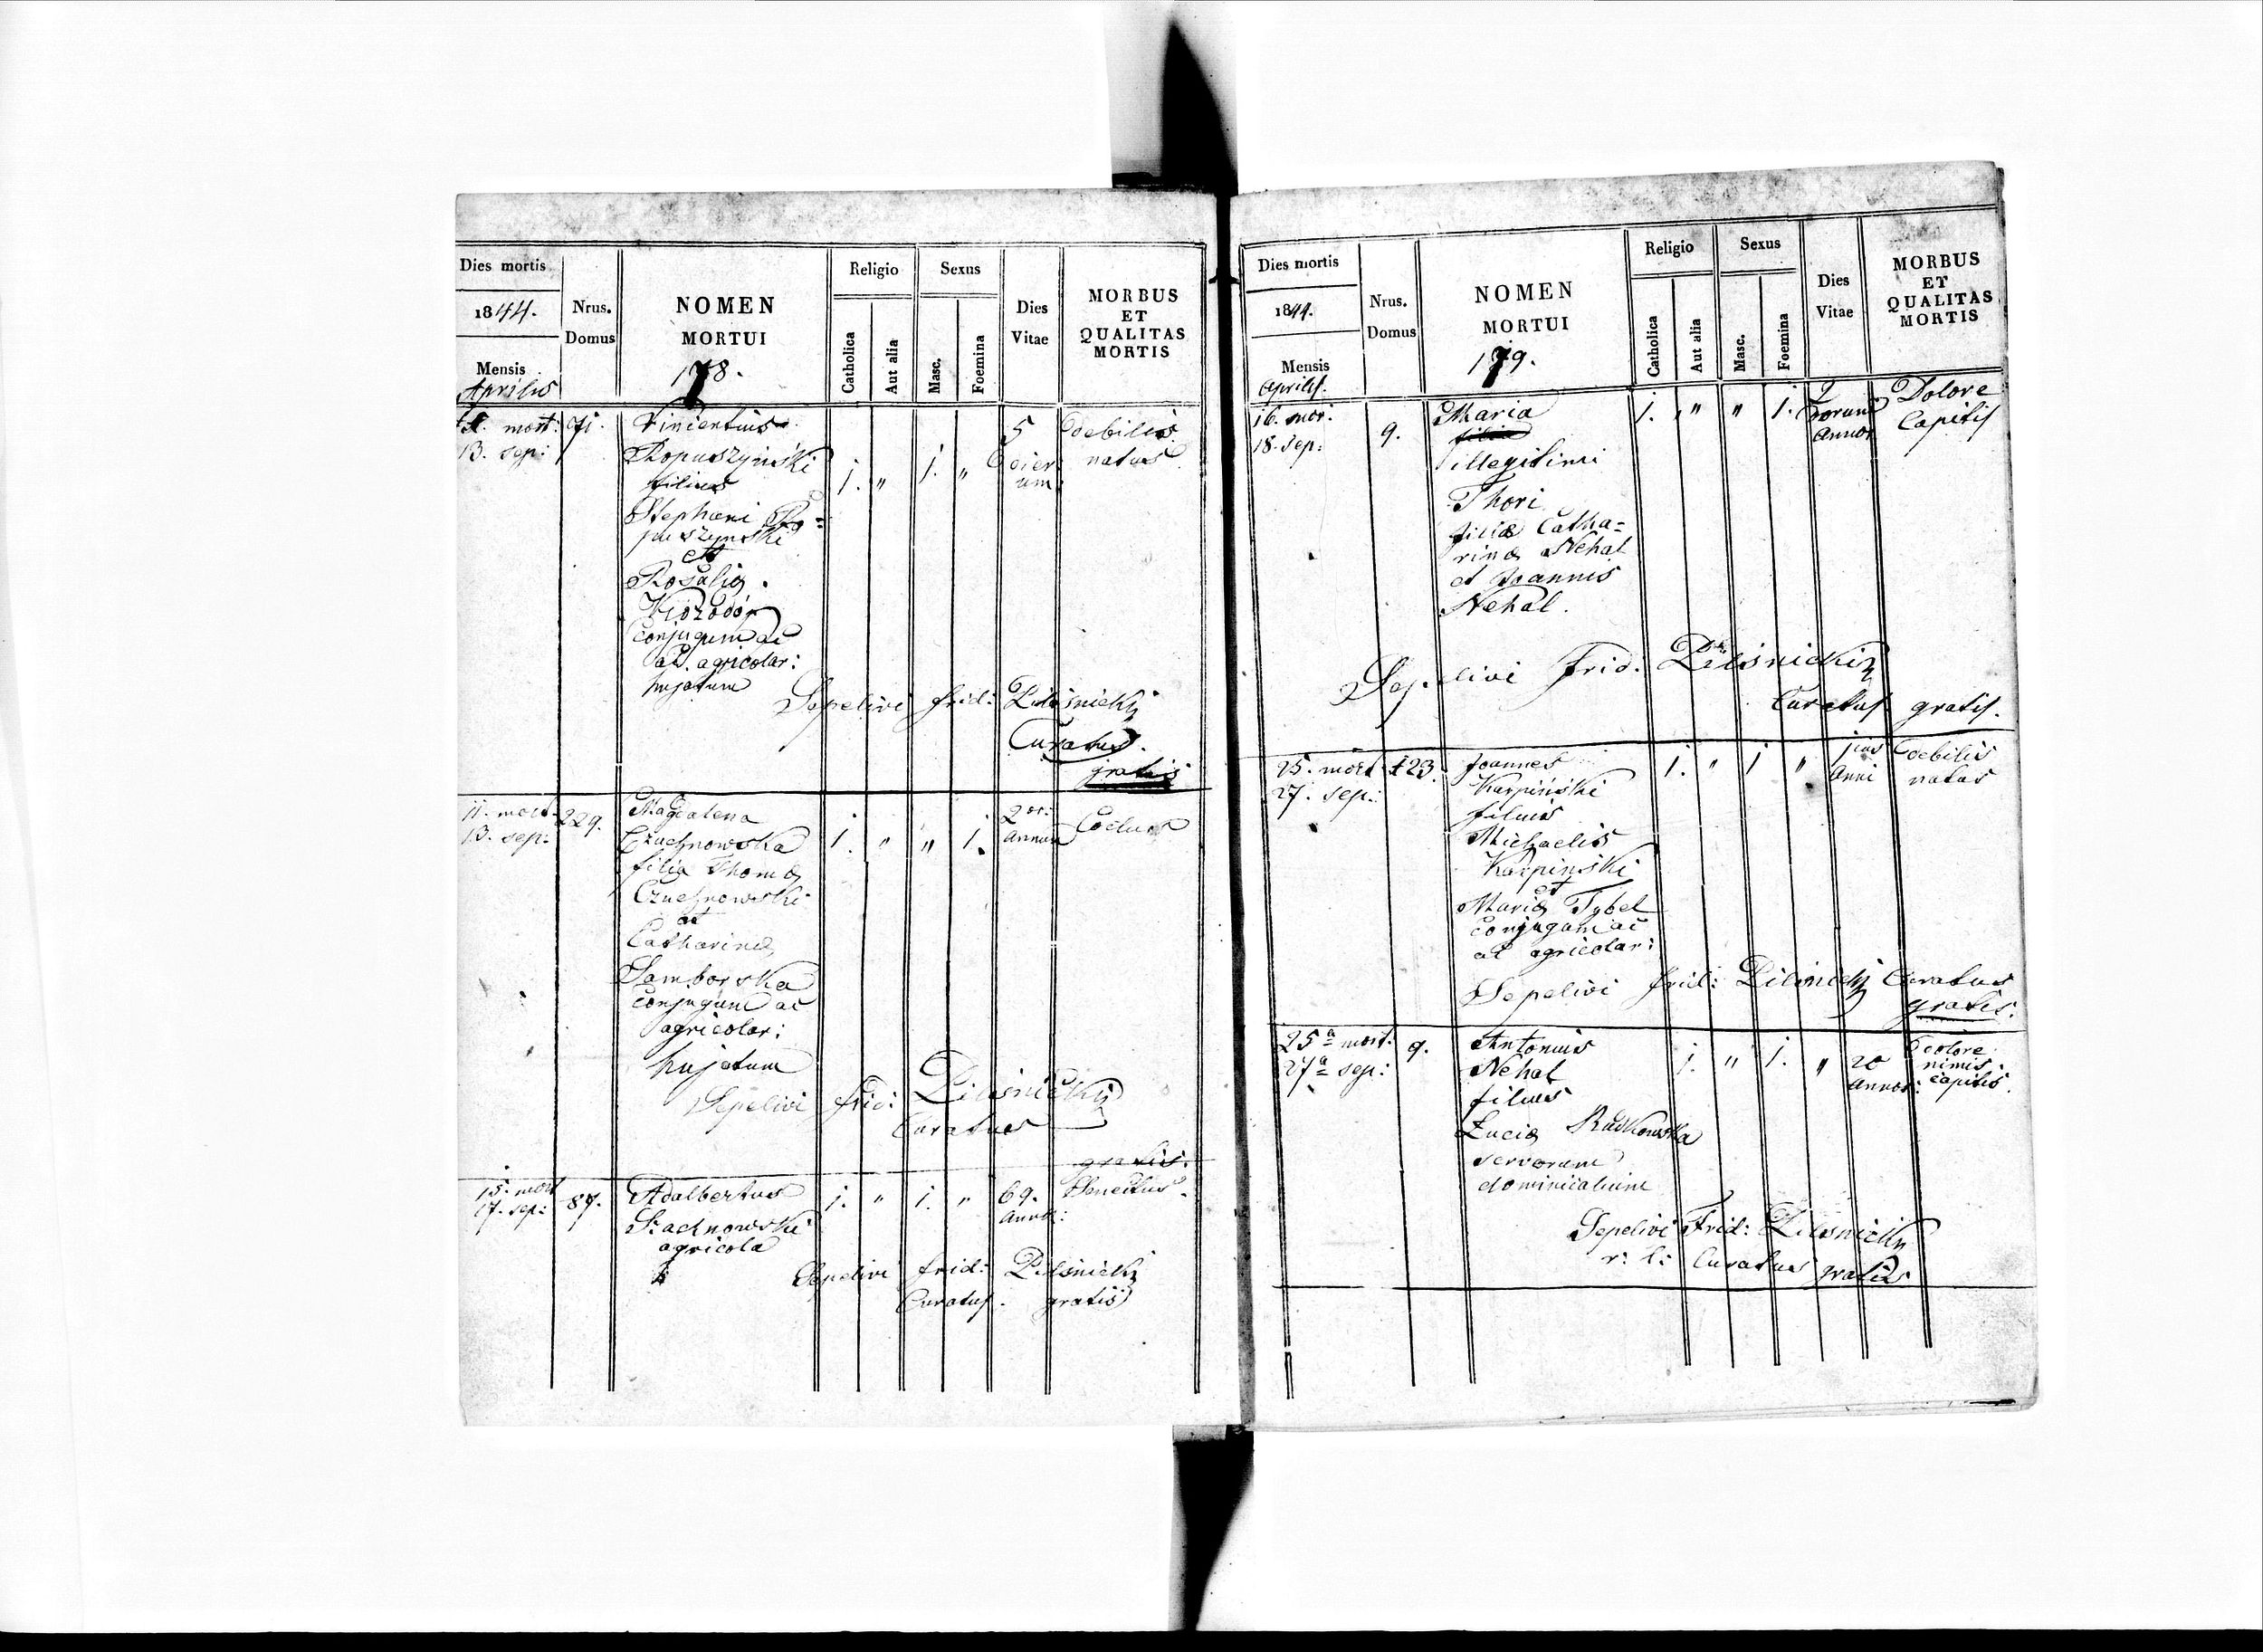 Dies mortis
1844.
Mensis
Aprilis
Nrus.
Domus
NOMEN
MORTUI
178.
Religio
Catholica
Aut alia
Sexus
Masc.
Foemina
Dies
Vitae
MORBUS
ET
QUALITAS
MORTIS
mort: 71.
13. sep:
Vincentius
Ropuszyński
filius
Stephani Ro=
puszynski
et
Rosalia
conjugum ac
ac. agricolar:
hujatum
1. " 1. "
5
dier
um
debilis
natus
Sepelivi frid: Pilśnicki
Curatus.
gratis
11. mort. 229.
13. sep:
Magdalena
Czuchnowska
filia Thoma
Czuchnowski
et
Catharina
Samborska
conjugum ac
agricolar:
hujatum
1. " " 1.
2 or:
annor
Sepelivi frid: Pilśnicki
Curatus
gratis.
15. mort 87.
17. sep:
Adalbertus
Stachnowski
agricola
1. " 1. "
69.
annor:
Senectus.
Sepelivi frid: Pilśnicki
Curatus. gratis
Dies mortis
1844.
Mensis
Aprilis.
Nrus.
Domus
NOMEN
MORTUI
179.
Religio
Catholica
Aut alia
Sexus
Masc.
Foemina
Dies
Vitae
MORBUS
ET
QUALITAS
MORTIS
16. mor. 9.
18. sep:
Maria
filia
illegitimi
Thori
filia Catha=
rina Nehal
et Joannis
Nehal.
1. " " 1.
2
orum
annor
Dolore
Capitis
Sepelivi Frid. Pilśnicki
Curatus gratis.
25. mort 123.
27. sep:
Joannes
Karpiński
filius
Michaelis
Karpinski
et
Maria Tybel
conjugum ac
at agricolar:
1. " 1 "
1ius
Anni
debilis
natus
Sepelivi frid: Pilśnicki Curatus
gratis.
25a mort: 9.
27a sep:
Antonius
Nehal
filius
Lucia Radkowska
servorum
dominicalium
1. " 1. "
20
annor:
dolore
nimis
capitis.
Sepelivi Frid: Pilśnicki
r: l: Curatus gratis